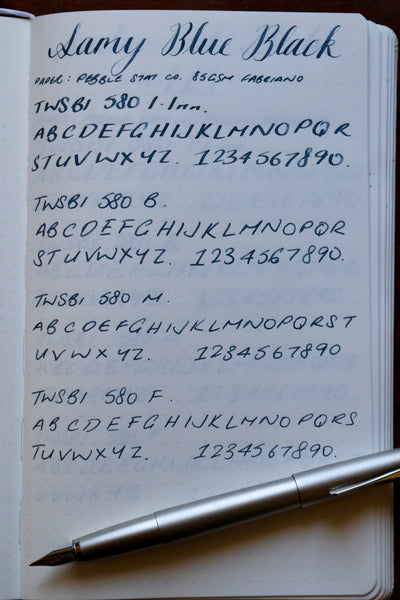 Lamy Blue Black
PAPER: PEBBLE STAT CO. 85GSM FABRIANO
TWSBI 580 1.1mm.
ABCDEFGHIJKLMNOPQR
STUVWXYZ. 1234567890.
TWSBI 580 B.
ABCDEFGHIJKLMNOPQR
STUVWXYZ. 1234567890.
TWSBI 580 M.
ABCDEFGHIJKLMNOPQRST
UVWXYZ. 1234567890
TWSBI 580 F.
ABCDEFGHIJKLMNOPQRS
TUVWXYZ. 1234567890.